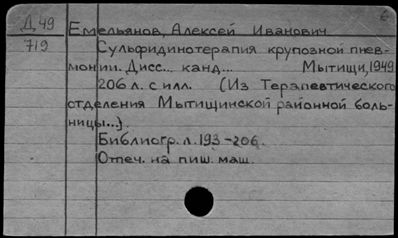 Д 49
719
6
Емельянов, Алексей Иванович
Сульфидинотерапия крупозной пнев-
монии. Дисс... канд... Мытищи, 1949
206 л. с илл. (Из Терапевтического
отделения Мытищинской районной боль-
ницы...).
Библиогр. л. 193-206.
Отпеч. на пиш. маш.